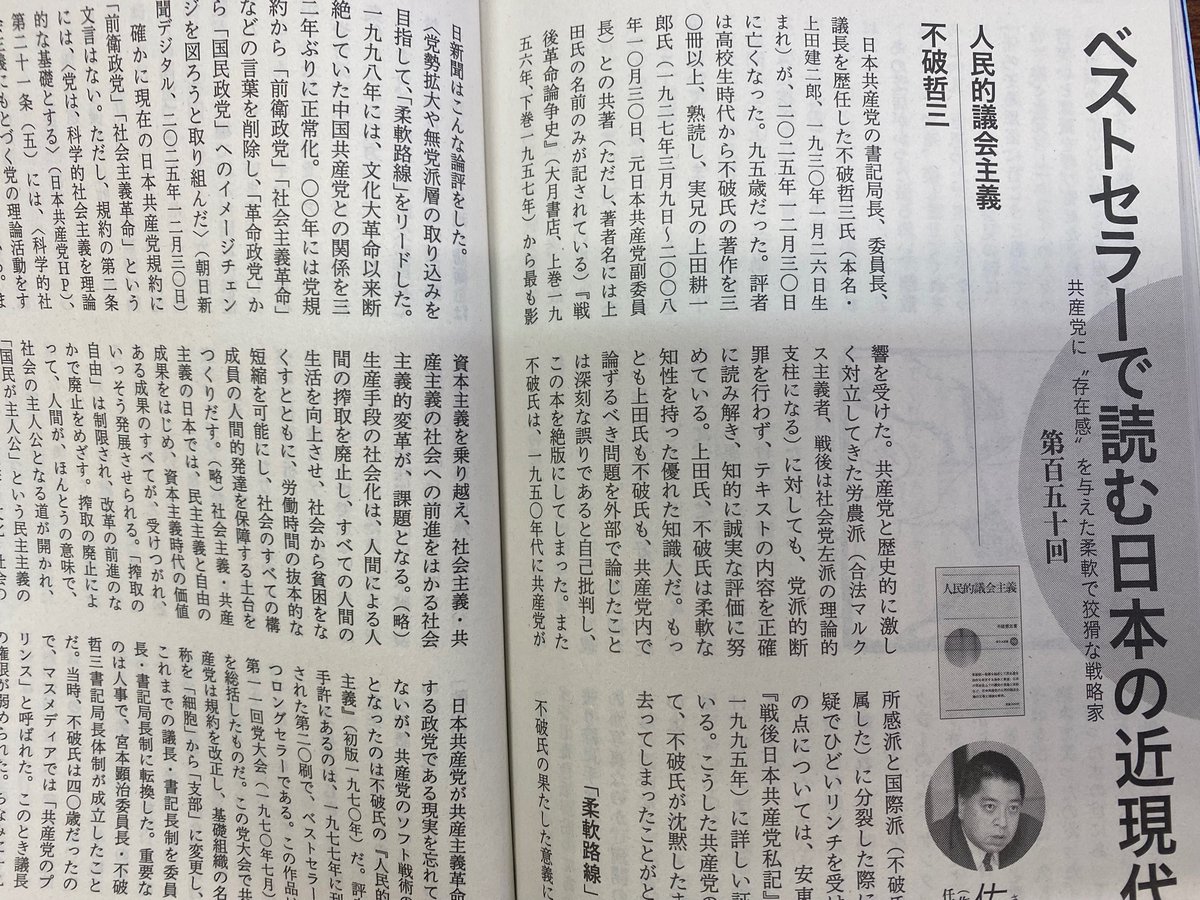 ベストセラーで読む日本の近現代
第百五十回
共産党に〝存在感〟を与えた柔軟で狡猾な戦略家
人民的議会主義
不破哲三
人民的議会主義
日本共産党の書記局長、委員長、
議長を歴任した不破哲三氏(本名・
上田建二郎、一九三〇年一月二六日生
まれ)が、二〇二五年一二月三〇日
に亡くなった。九五歳だった。評者
は高校生時代から不破氏の著作を三
〇冊以上、熟読し、実兄の上田耕一
郎氏(一九二七年三月九日〜二〇〇八
年一〇月三〇日、元日本共産党副委員
長)との共著(ただし、著者名には上
田氏の名前のみが記されている)『戦
後革命論争史』(大月書店、上巻一九
五六年、下巻一九五七年)から最も影
響を受けた。共産党と歴史的に激し
く対立してきた労農派(合法マルク
ス主義者、戦後は社会党左派の理論的
支柱になる)に対しても、党派的断
罪を行わず、テキストの内容を正確
に読み解き、知的に誠実な評価に努
めている。上田氏、不破氏は柔軟な
知性を持った優れた知識人だ。もっ
とも上田氏も不破氏も、共産党内で
論ずるべき問題を外部で論じたこと
は深刻な誤りであると自己批判し、
この本を絶版にしてしまった。また
不破氏は、一九五〇年代に共産党が
所感派と国際派(不破
属した)に分裂した際に
疑でひどいリンチを受け
の点については、安東
『戦後日本共産党私記』
一九九五年)に詳しい証
いる。こうした共産党の
て、不破氏が沈黙したま
去ってしまったことがと
「柔軟路線」
不破氏の果たした意義に
日新聞はこんな論評をした。
〈党勢拡大や無党派層の取り込みを
目指して、「柔軟路線」をリードした。
一九九八年には、文化大革命以来断
絶していた中国共産党との関係を三
二年ぶりに正常化。〇〇年には党規
約から「前衛政党」「社会主義革命」
などの言葉を削除し、「革命政党」か
ら「国民政党」へのイメージチェン
ジを図ろうと取り組んだ〉(朝日新
聞デジタル、二〇二五年一二月三〇日)
確かに現在の日本共産党規約に
「前衛政党」「社会主義革命」という
文言はない。ただし、規約の第二条
には、〈党は、科学的社会主義を理論
的な基礎とする〉(日本共産党HP)、
第二十一条(五)には、〈科学的社
会主義にもとづく党の理論活動をす
資本主義を乗り越え、社会主義・共
産主義の社会への前進をはかる社会
主義的変革が、課題となる。(略)
生産手段の社会化は、人間による人
間の搾取を廃止し、すべての人間の
生活を向上させ、社会から貧困をな
くすとともに、労働時間の抜本的な
短縮を可能にし、社会のすべての構
成員の人間的発達を保障する土台を
つくりだす。(略)社会主義・共産
主義の日本では、民主主義と自由の
成果をはじめ、資本主義時代の価値
ある成果のすべてが、受けつがれ、
いっそう発展させられる。「搾取の
自由」は制限され、改革の前進のな
かで廃止をめざす。搾取の廃止によ
って、人間が、ほんとうの意味で、
社会の主人公となる道が開かれ、
「国民が主人公」という民主主義の
日本共産党が共産主義革命
する政党である現実を忘れて
ないが、共産党のソフト戦術の
となったのは不破氏の『人民的
主義』(初版一九七〇年)だ。評
手許にあるのは、一九七七年に刊
された第二〇刷で、ベストセラー
つロングセラーである。この作品は
第一一回党大会(一九七〇年七月)
を総括したものだ。この党大会で共
産党は規約を改正し、基礎組織の名
称を「細胞」から「支部」に変更し、
これまでの議長・書記長制を委員
長・書記局長制に転換した。重要な
のは人事で、宮本顕治委員長・不破
哲三書記局長体制が成立したこと
だ。当時、不破氏は四〇歳だったの
で、マスメディアでは「共産党のプ
リンス」と呼ばれた。このとき議長